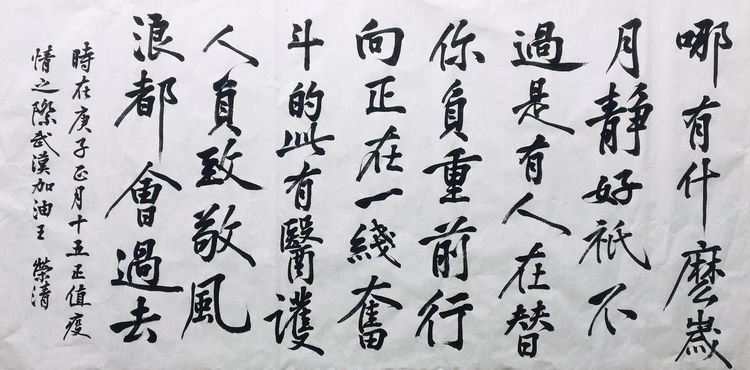 哪有什麼歲
月靜好祇不
過是有人在替
你負重前行
向正在一綫奮
斗的所有醫護
人員致敬風
浪都會過去
時在庚子正月十五正值疫
情之際武漢加油王榮清